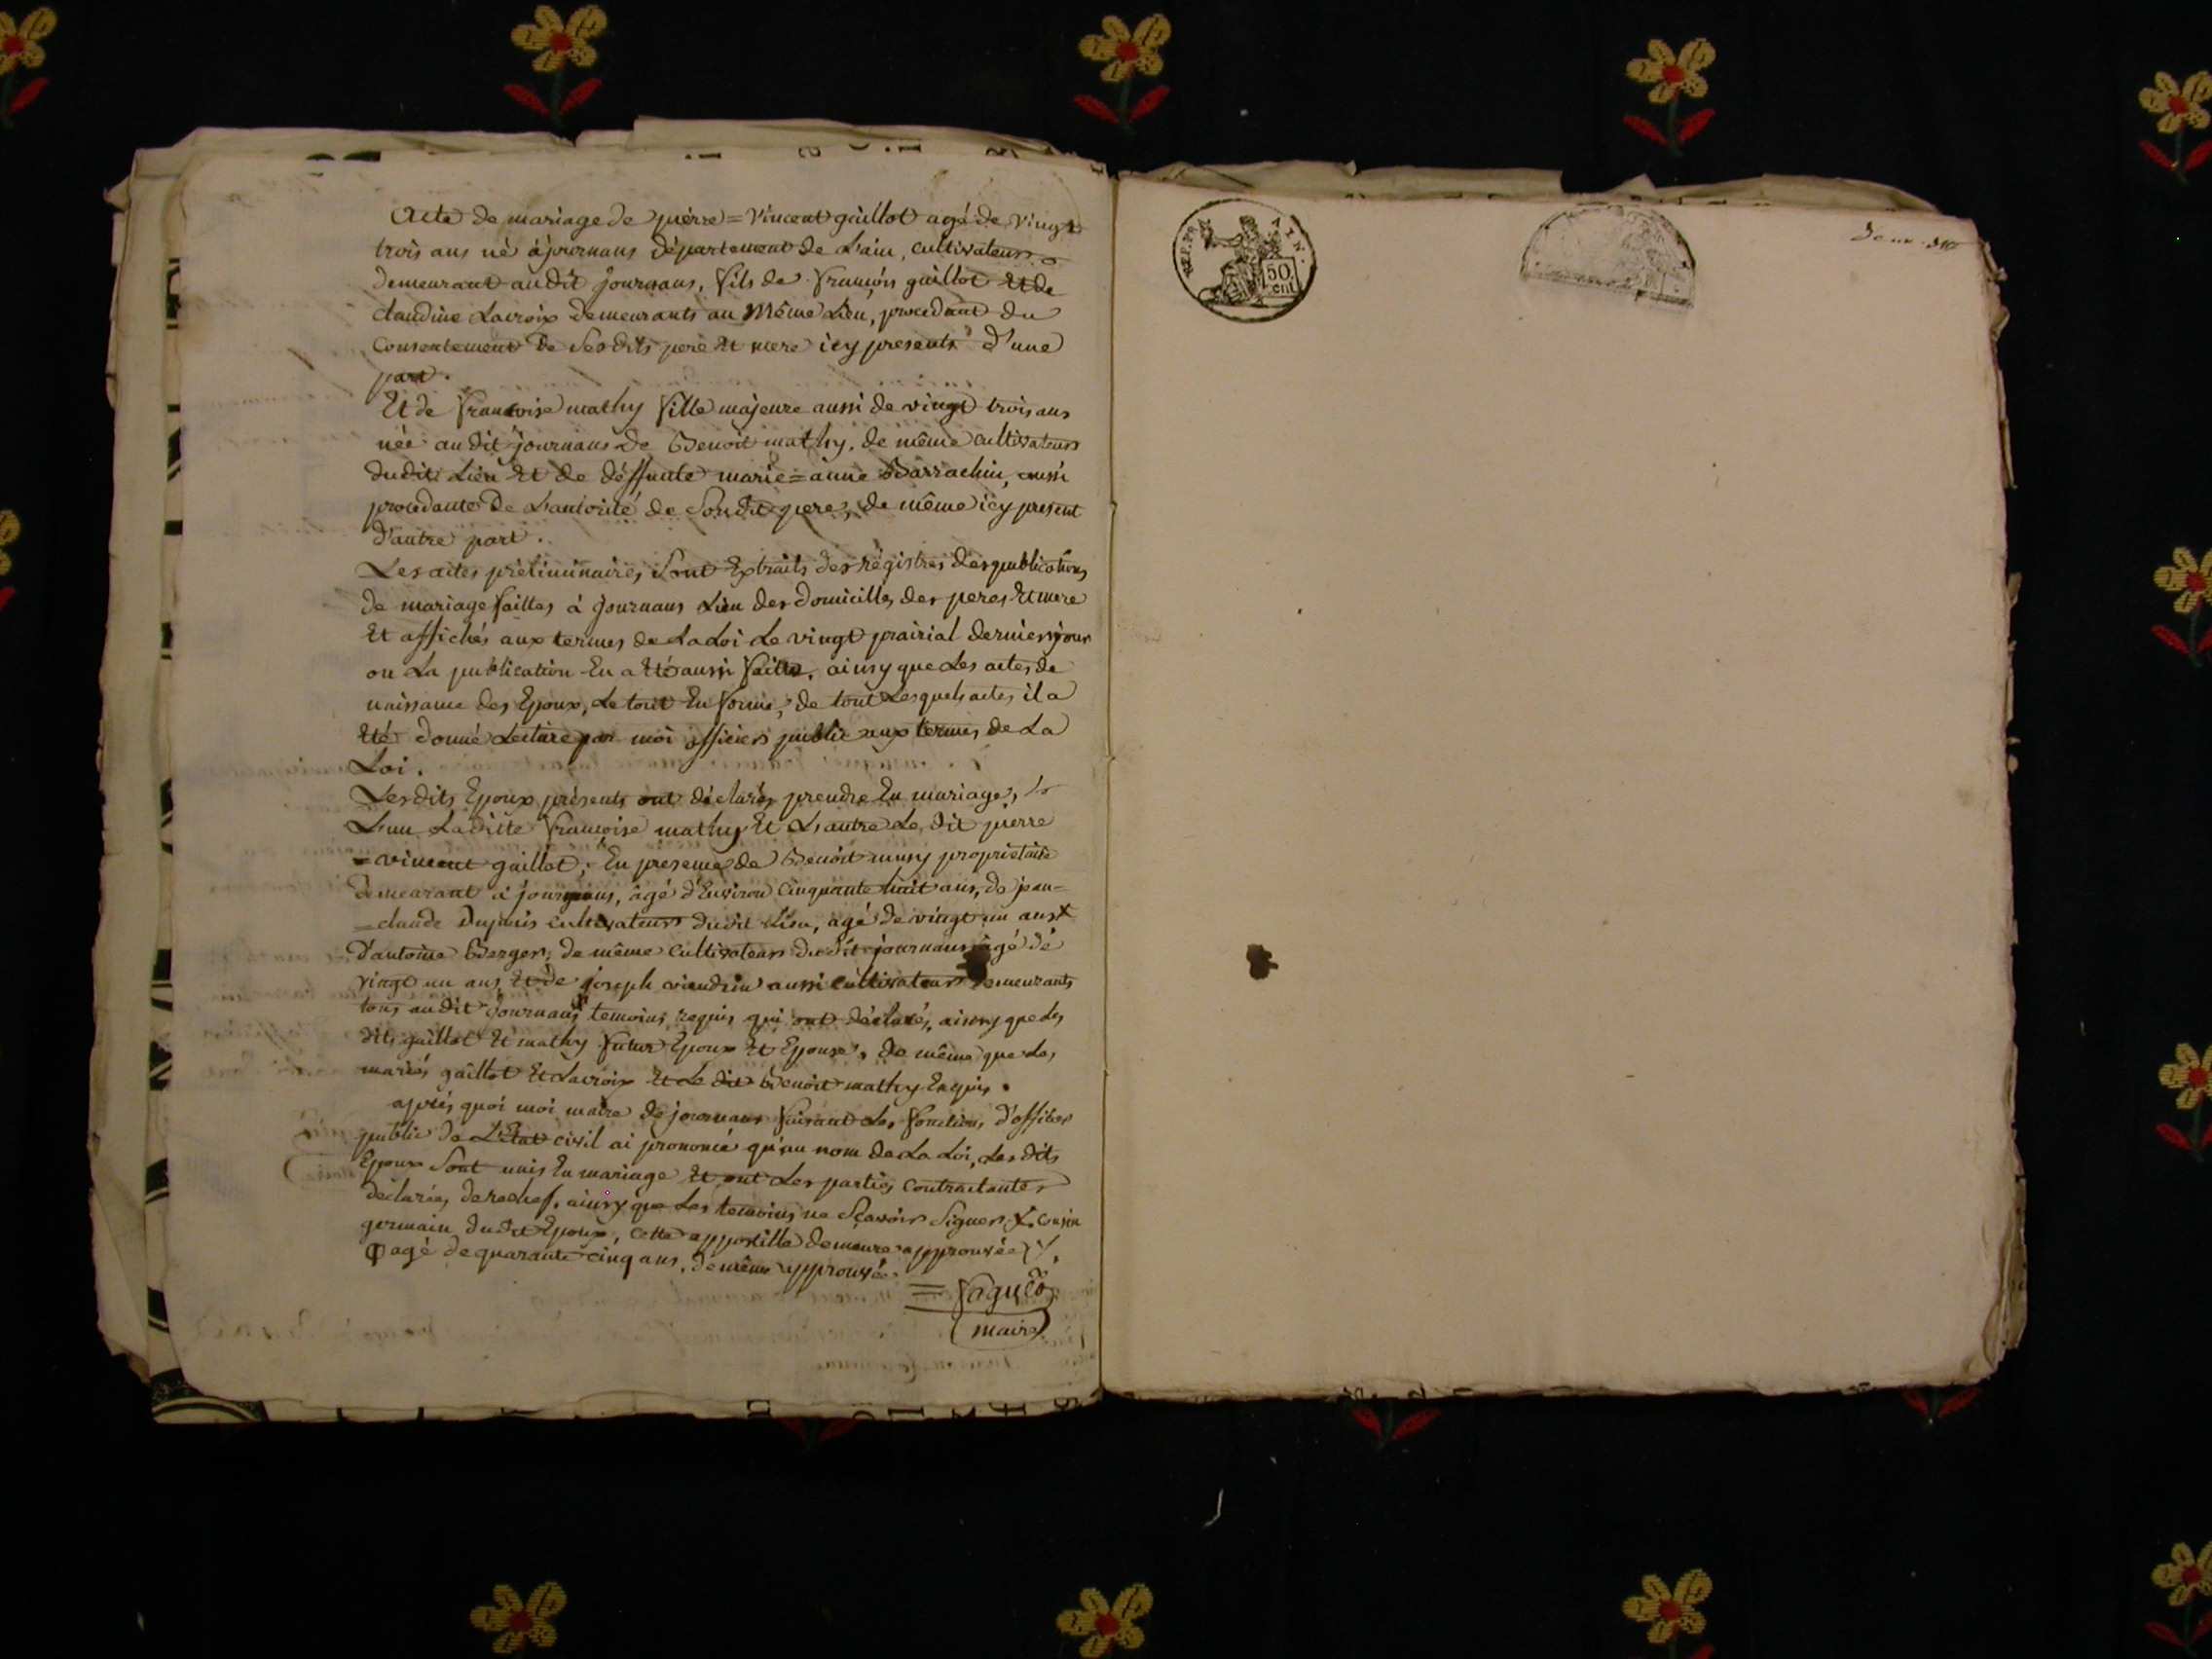 Acte de mariage de pierre = Vincent gaillot agé de Vingt
trois ans né à journans département de L'ain, cultivateur
demeurant audit journans, fils de françois gaillot Et de
claudine Lacroix demeurants au Même Lieu, procedant du
Consentement de Sesdits pere Et mere icy presents d'une
part.
Et de francoise mathy fille majeure aussi de vingt trois ans
née audit journans de Benoit mathy, de même cultivateur
dudit Lieu Et de déffunte marie = anne Barrachin, aussi
procedante de L'autorité de Son dit pere, de même icy present
d'autre part.
Les actes préliminaires Sont Extraits des régistres des publications
de mariage faittes à journans Lieu des domicilles des peres Et mere
Et affichés aux termes de La Loi Le vingt prairial dernier jour
ou La publication En a Eté aussi faitte, ainsy que Les actes de
naissance des Epoux, Le tout En forme, de tout Lesquels actes il a
Eté donné Lecture par moi officier public aux termes de La
Loi.
Lesdits Epoux présents ont déclarés prendre En mariage,
L'un Laditte françoise mathy Et L'autre Le dit pierre
= vincent gaillot; En presence de Benoit muny propriétaire
demeurant à journans, âgé d'Environ Cinquante huit ans, de jean =
= claude Dupuis cultivateur dudit Lieu, agé de vingt un ans X
d'antoine Berger, de même Cultivateur dudit journans agé de
vingt un ans, Et de joseph aussi cultivateur demeurants
tous audit Journans temoins requis qui ont déclarés, ainsy que Les
dits gaillot Et mathy futur Epoux Et Epouse, de même que Les
mariés gaillot Et Lacroix Et Le dit Benoit mathy Enquis.
après quoi moi maire de journans faisant Les fonctions d'officier
public de L'Etat civil ai prononcé qu'au nom de La Loi, Les dits
Epoux Sont unis En mariage Et ont Les parties Contractantes
déclarées derechef, ainsy que Les temoins ne Sçavoir Signer X. Cousin
germain dudit Epoux, cette appostille demeure approuvée
φ agé de quarante cinq ans, de même approuvée.
maire
REP. FRA
AIN.
50
cent